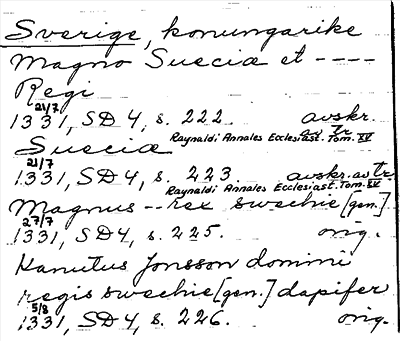 Sverige, konungarike
Magno Sueciæ et ----
Regi
21/7
1331, SD 4, s. 222. avskr.
av tr.
Raynaldi Annales Ecclesiast. Tom. XV
Sueciæ
21/7
1331, SD 4, s. 223. avskr. av tr.
Raynaldi Annales Ecclesiast. Tom. XV
Magnus -- rex swechie [gen.]
27/7
1331, SD 4, s. 225. orig.
Kanutus Jonsson domini
regis swechie [gen.] dapifer
5/8
1331, SD 4, s. 226. orig.